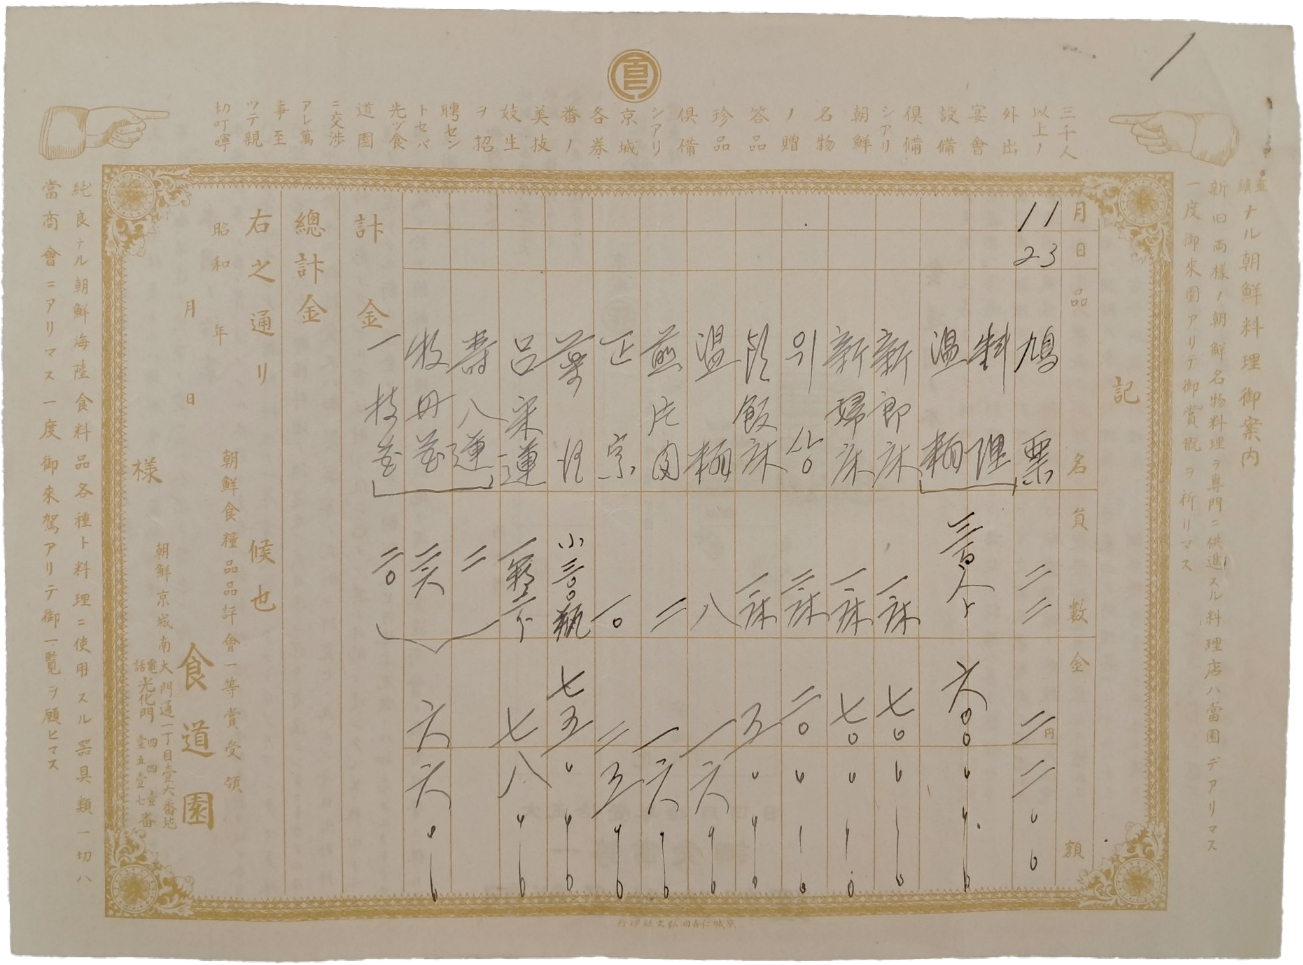 三十人
以上ノ
外出
宴會
設備
俱備
シアリ
朝鮮
名物
ノ贈
答品
珍品
俱備
シアリ
京城
各券
番ノ
美技
妓生
ヲ招
聘セン
トセバ
先ツ食
道園
ニ交渉
アレ萬
事至
ツテ親
切叮嚀
ナル朝鮮料理御案内
新旧両様ノ朝鮮名物料理ヲ専門ニ供進スル料理店ハ當園デアリマス
一度御来園アリテ御賞觀ヲ祈リマス
記
月日 品名 員數 金額
11 23
鳩票 二二 二二
料理
温麺 三百人分 六〇〇
新郎床 一床 七〇
新婦床 一床 七〇
위상 二床 二〇
飯床 一床 五
温麺 八 一六
煎片肉 二 一六
正宗 一〇 二五
葉 小三〇〇瓶 七五
呂宋蓮 七八
壽八蓮 二
牧丹花 二六 六六
一枝花 二〇
計金
總計金
右之通リ候也
昭和 年
月 日
様
朝鮮食糧品品評會一等賞受領
朝鮮京城南大門通一丁目壹六番地
電話光化門
食道園
純良ナル朝鮮海陸食料品各種ト料理ニ使用スル器具類一切ハ
當商會ニアリマス一度御来駕アリテ御一覧ヲ願ヒマス